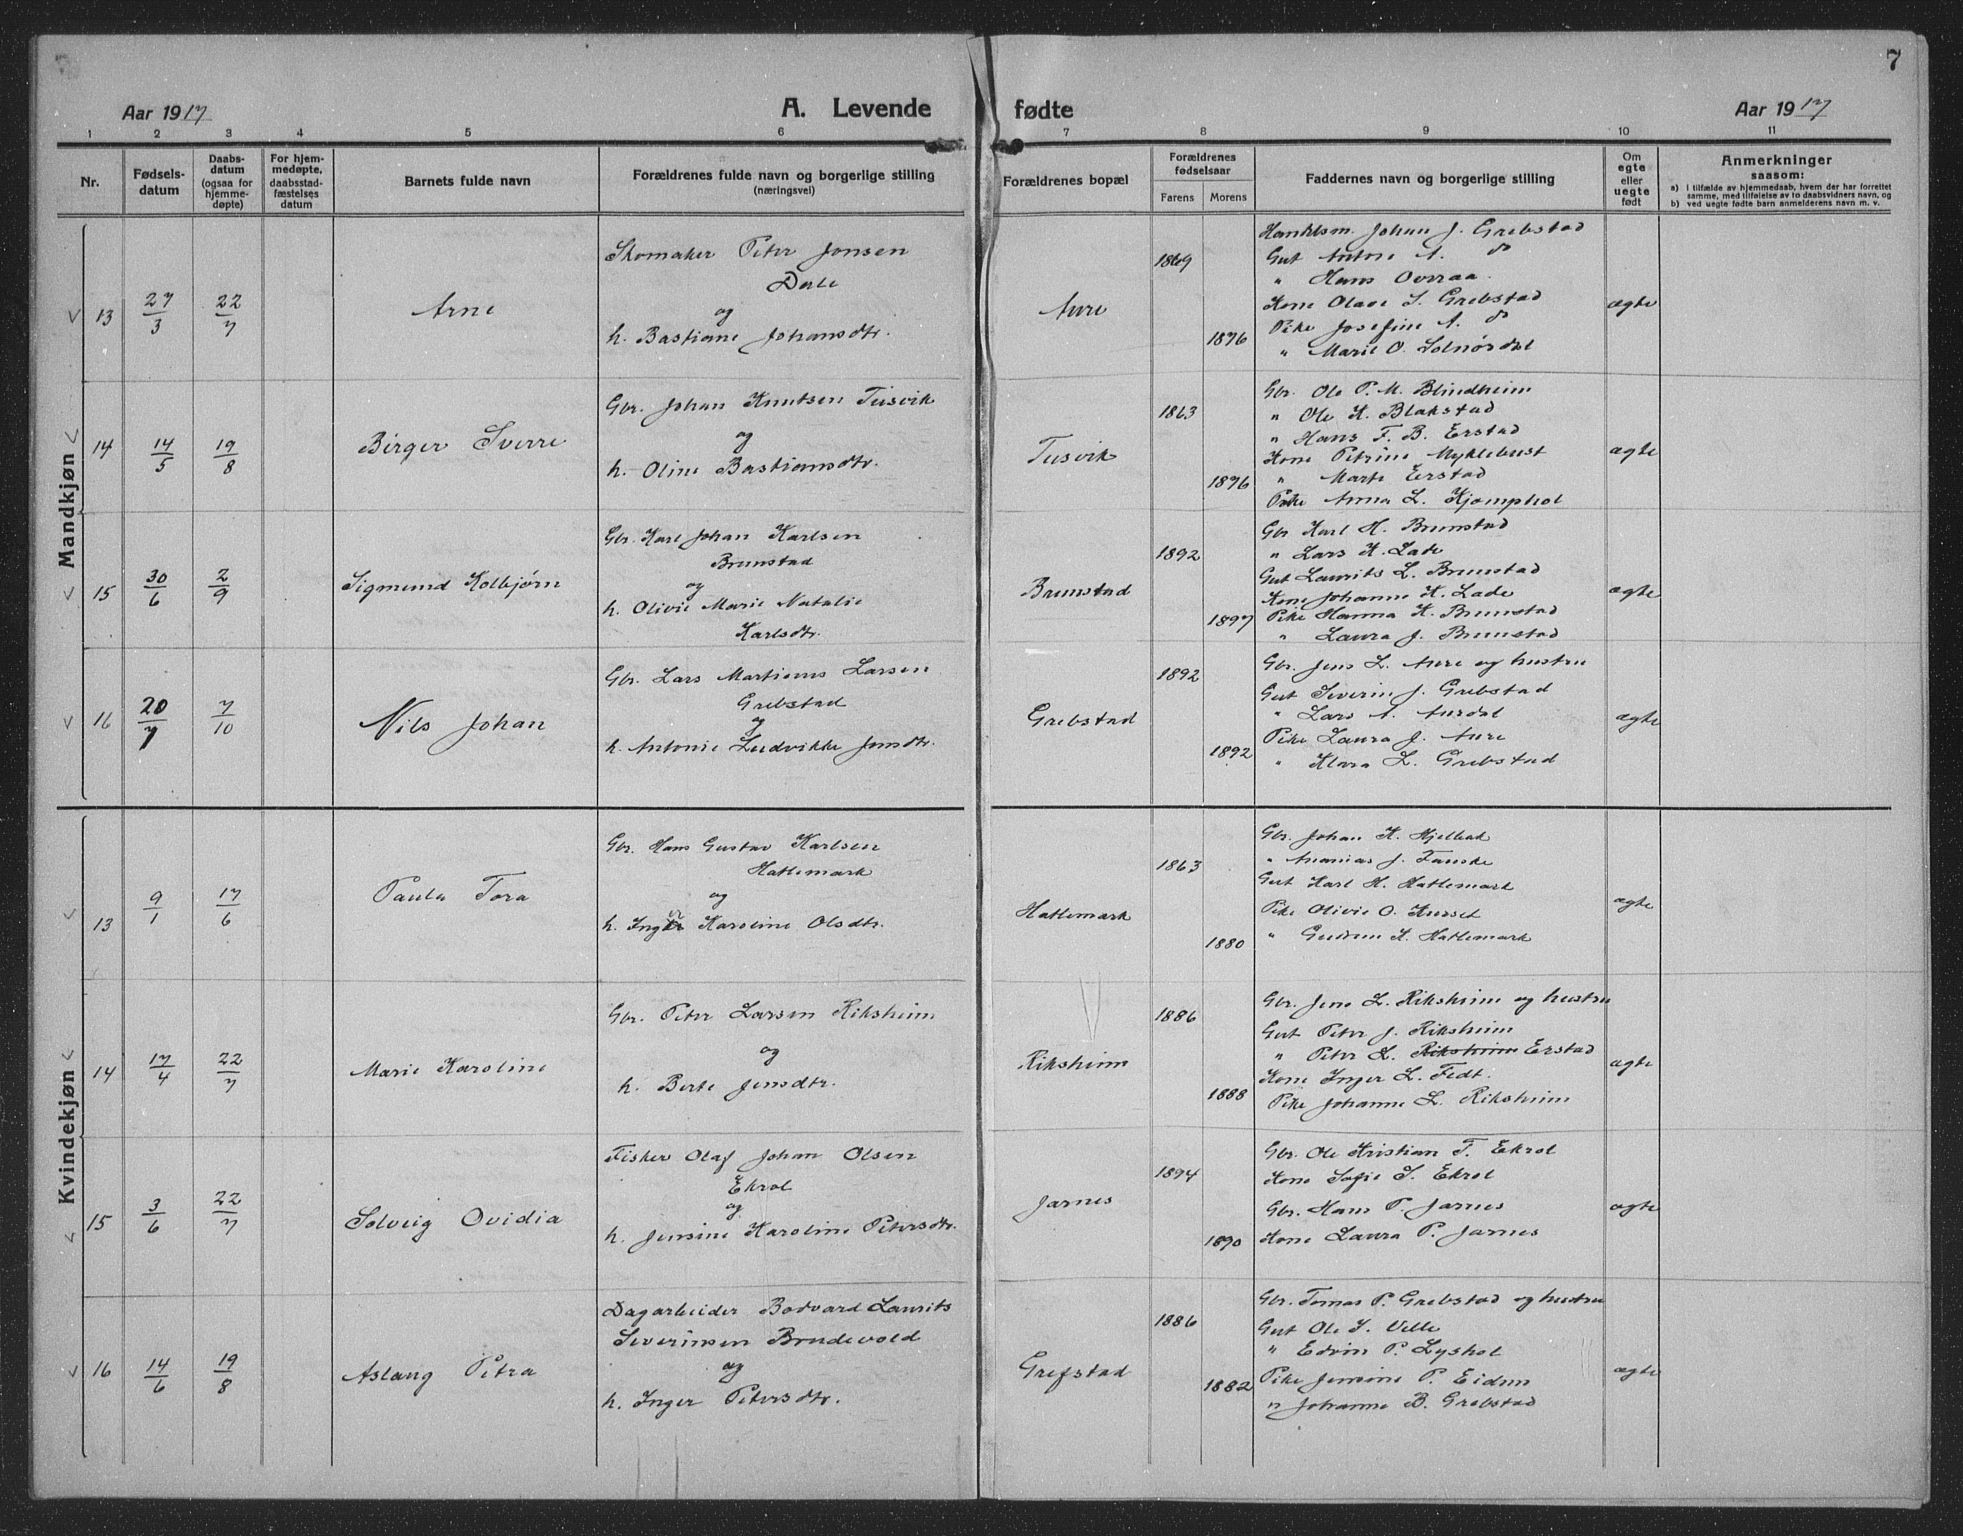 7
Aar 1917 A. Levende fødte Aar 1917
1 2 3 4 5 6 7 8 9 10 11
Nr. Fødsels-datum Daabs-datum (ogsaa for hjemme-døpte) For hjem-medøpte, daabsstad-fæstelses datum Barnets fulde navn Forældrenes fulde navn og borgerlige stilling (næringsvei) Forældrenes bopæl Forældrenes fødselsaar Farens Morens Faddernes navn og borgerlige stilling Om egte eller uegte født Anmerkninger saasom:
a) I tilfælde av hjemmedaab, hvem der har forrettet samme, med tilføielse av to daabsvidners navn, og
b) ved uegte fødte barn anmelderens navn m. v.
Mandkjøn
13 27/3 22/7 Arne
Skomaker Peter Jonsen
Dale
og
h. Bastiane Johansdtr.
Aure
1869
1876
Handelsm. Johan J. Grebstad
Gut Anton A. do
" Hans Overaa
Kone Olave S. Grebstad
Pike Josefine A. do
" Marie O. Solnørdal
ægte
14 14/5 19/8 Birger Sverre
Gbr. Johan Knutsen Tusvik
og
h. Oline Bastiansdtr.
Tusvik
1863
1876
Gbr. Ole P. M. Blindheim
" Ole K. Blakstad
" Hans F. B. Erstad
Kone Petrine Myklebust
" Marte Erstad
Pike Anna L. Kjemphol
ægte
15 30/6 2/9 Sigmund Kolbjørn
Gbr. Karl Johan Karlsen
Brunstad
og
h. Olivie Marie Natalie
Karlsdtr.
Brunstad
1892
1897
Gbr Karl H. Brunstad
" Lars K. Lade
Gut Laurits L. Brunstad
Kone Johanne K. Lade
Pike Hanna K. Brunstad
" Laura J. Brunstad
ægte
16 20/7 7/10 Nils Johan
Gbr. Lars Martinus Larsen
Grebstad
og
h. Antonie Ludvikke Jensdtr.
Grebstad
1892
1892
Gbr. Jens L. Aure og hustru
Gut Severin J. Grebstad
" Lars A. Aurdal
Pike Laura J. Aure
" Klara L. Grebstad
ægte
Kvindekjøn
13 9/1 17/6 Paula Tora
Gbr. Hans Gustav Karlsen
Hatlemark
og
h. Inger Karoline Olsdtr.
Hatlemark
1863
1880
Gbr. Johan K. Hjelbak
" Ananias J. Fauske
Gut Karl H. Hatlemark
Pike Olivie O. Kurset
" Gudrun K. Hatlemark
ægte
14 17/4 22/7 Marie Karoline
Gbr. Peter Larsen Riksheim
og
h. Berte Jensdtr.
Riksheim
1886
1888
Gbr. Jens L. Riksheim og hustru
Gut Peter J. Riksheim
" Peter L. Riksheim Erstad
Kone Inger L. Fedt.
Pike Johanne L. Riksheim
ægte
15 3/6 22/7 Solveig Ovidia
Fisker Olaf Johan Olsen
Ekrol
og
h. Jensine Karoline Petersdtr.
Jarnes
1894
1890
Gbr. Ole Kristian T. Ekrol
Kone Sofie S. Ekrol
Gbr. Hans P. Jarnes
Kone Laura P. Jarnes
ægte
16 14/6 19/8 Aslaug Petra
Dagarbeider Bodvard Laurits
Severinsen Brudevold
og
h. Inger Petersdtr.
Grefstad
1886
1882
Gbr. Tomas P. Grebstad og hustru
Gut Ole S. Velle
" Edvin P. Lyshol
Pike Jensine P. Eidem
" Johanne B. Grebstad
ægte